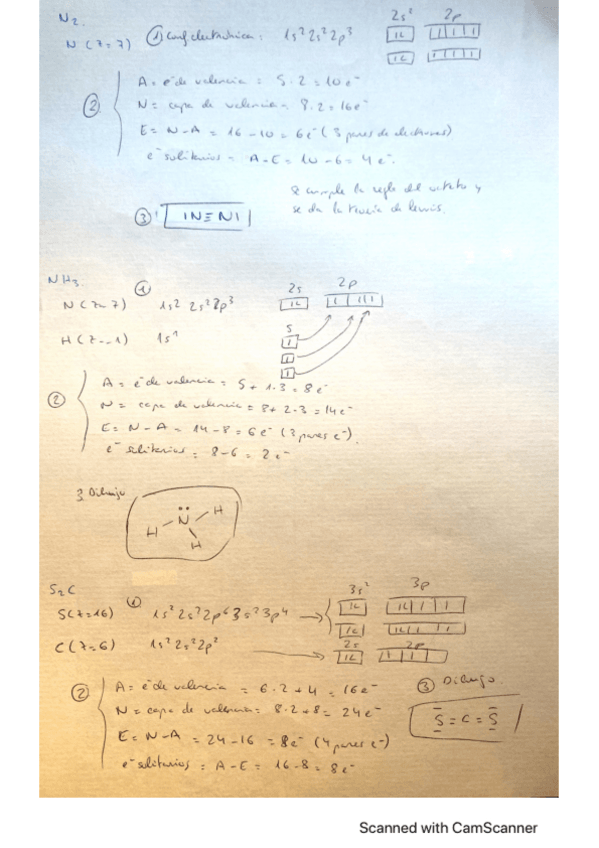 N₂
N (Z=7) ① Conf electrónica: 1s² 2s² 2p³ 2s² 2p
② A = e⁻ de valencia = 5·2 = 10e⁻
N = capa de valencia = 8·2 = 16e⁻
E = N-A = 16-10 = 6e⁻ (3 pares de electrones)
e⁻ solitarios = A-E = 10-6 = 4e⁻.
Se cumple la regla del octeto y
se da la teoría de lewis.
③ |N≡N|
NH₃. ①
N (Z=7) 1s² 2s² 2p³ 2s 2p
H (Z=1) 1s¹ s
② A = e⁻ de valencia = 5+1·3 = 8e⁻
N = capa de valencia = 8+2·3 = 14e⁻
E = N-A = 14-8 = 6e⁻ (3 pares e⁻).
e⁻ solitarios = 8-6 = 2e⁻
3. Dibujo
H N H
H
S₂C ①
S (Z=16) 1s² 2s² 2p⁶ 3s² 3p⁴ 3s² 3p
C (Z=6) 1s² 2s² 2p² 2s 2p
② A = e⁻ de valencia = 6·2+4 = 16e⁻
N = capa de valencia = 8·2+8 = 24e⁻
E = N-A = 24-16 = 8e⁻ (4 pares e⁻)
e⁻ solitarios = A-E = 16-8 = 8e⁻
③ Dibujo.
S=C=S
Scanned with CamScanner